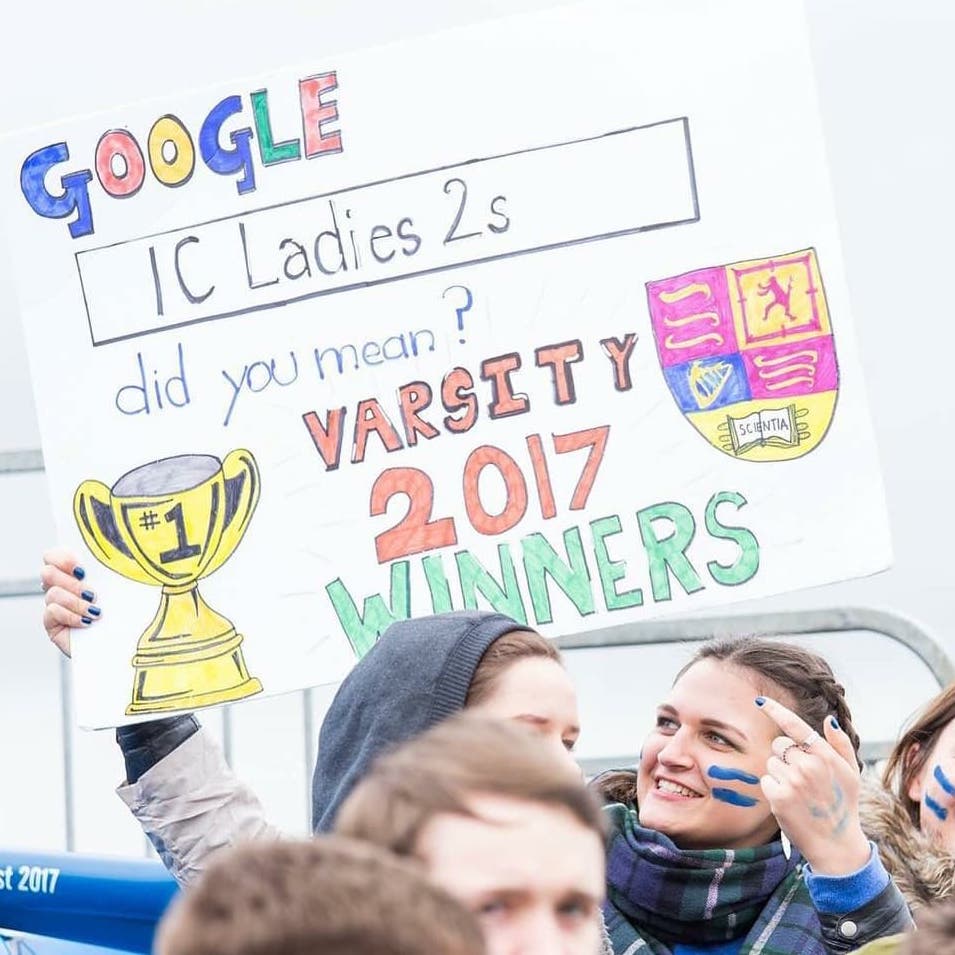 GOOGLE
IC Ladies 2s
did you mean?
VARSITY
2017
WINNERS
SCIENTIA
#1
st 2017